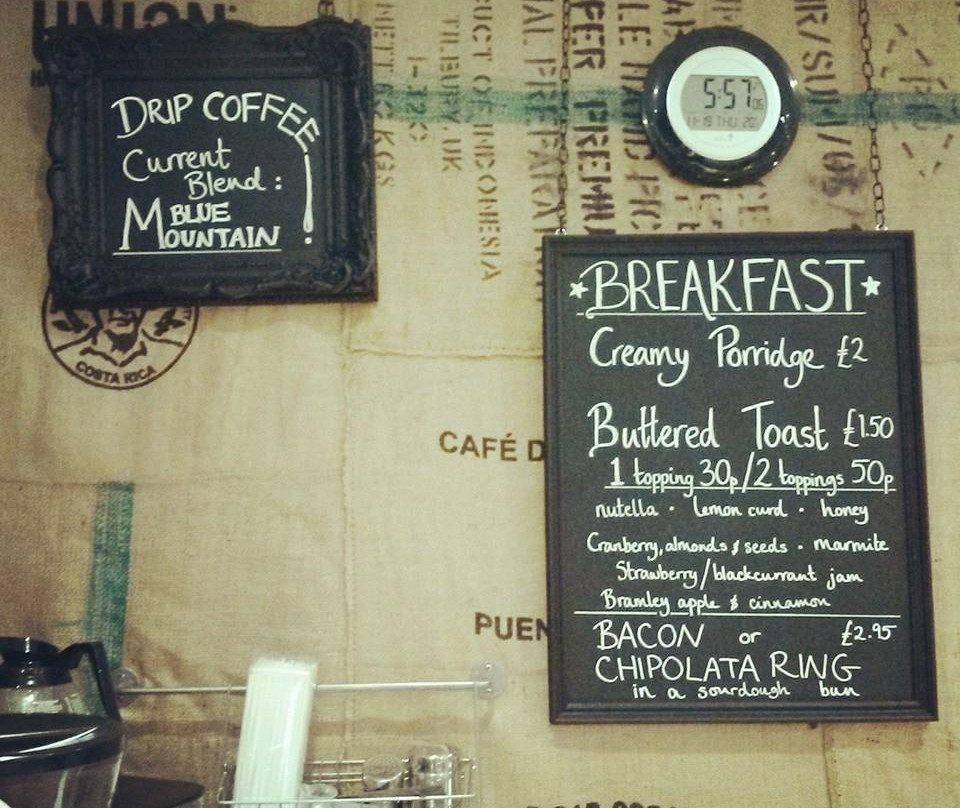 UNION
DRIP COFFEE
Current
Blend:
BLUE
MOUNTAIN
COSTA RICA
TILBURY, UK
PRODUCT OF INDONESIA
5:57
11-19 THU
CAFÉ D
PUEN
BREAKFAST
Creamy Porridge £2
Buttered Toast £1.50
1 topping 30p/2 toppings 50p
nutella · lemon curd · honey
Cranberry, almonds & seeds · marmite
Strawberry/blackcurrant jam
Bramley apple & cinnamon
BACON or £2.95
CHIPOLATA RING
in a sourdough bun